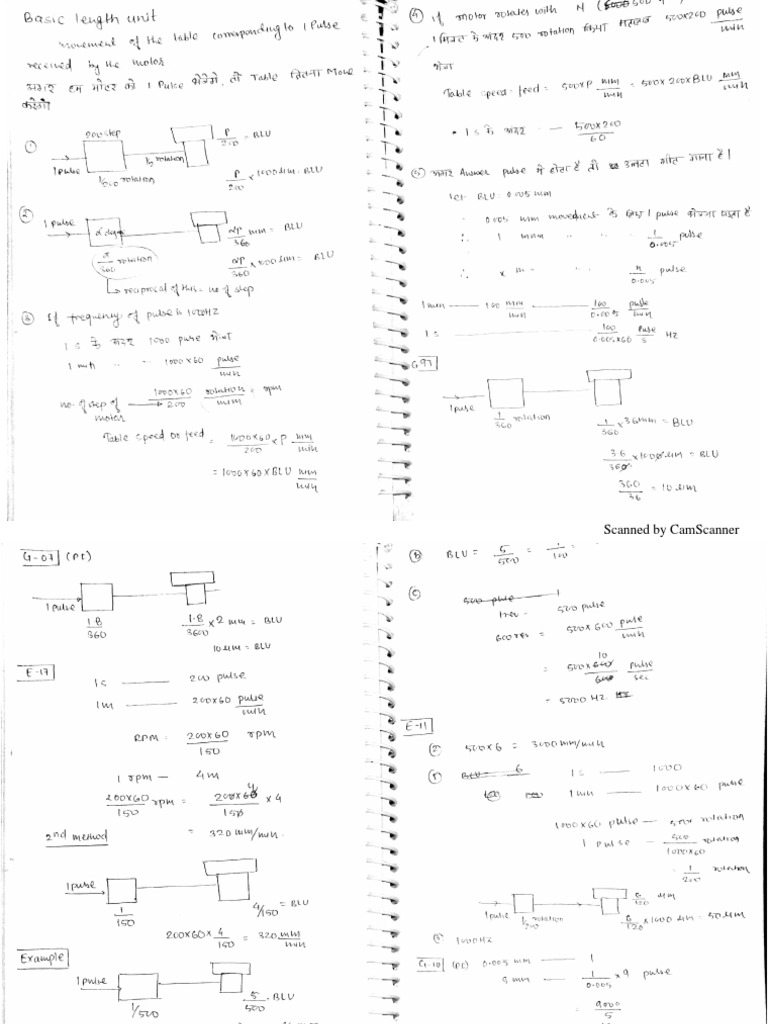 Basic length unit
movement of the table corresponding to 1 Pulse
received by the motor
अगर हम मोटर को 1 Pulse भेजेंगे, तो Table कितना Move
करेगी
①
200 step
1 pulse
1/200 rotation
1/200 rotation
P/200 = BLU
P/200 × 1000 μm = BLU
②
1 pulse
α deg
α/360 rotation
αP/360 mm = BLU
αP/360 × 1000 μm = BLU
reciprocal of this = no of step
③ If frequency of pulse is 1000HZ
1 s के अंदर 1000 pulse भेजा
1 min " " 1000×60 pulse/min
no. of step of motor → 1000×60/200 rotation/min = rpm
Table speed or feed = 1000×60/200 × P mm/min
= 1000×60×BLU mm/min
④ if motor rotates with N
1 मिनट के अंदर 500 rotation किया मतलब 500×200 pulse/min
भेजा
Table speed = feed = 500×P mm/min = 500×200×BLU mm/min
• 1 s के अंदर — 500×200/60
⑤ अगर Answer pulse में होता है तो उल्टा
let BLU = 0.005 mm
0.005 mm movement के लिए 1 pulse भेजना पड़ता है
∴ 1 mm " " " 1/0.005 pulse
∴ x m " " x/0.005 pulse
1 min — 100 mm/min — 100/0.005 pulse/min
1 s — 100/0.005×60 pulse/s HZ
G-97
1 pulse
1/360 rotation
1/360 × 3.6mm = BLU
3.6/360 × 1000 μm = BLU
360/36 = 10 μm
Scanned by CamScanner
G-07 (PI)
1 pulse
1.8/360
1.8/3600 × 2 mm = BLU
10 μm = BLU
E-17
1 s — 200 pulse
1m — 200×60 pulse/min
RPM = 200×60/150 rpm
1 rpm — 4m
200×60/150 rpm = 200×60/150 × 4
= 320 mm/min.
2nd method
1 pulse
1/150
4/150 = BLU
200×60×4/150 = 320 mm/min
Example
1 pulse
1/500
5/500 = BLU
Ⓑ BLU = 5/500 = 1/100 =
Ⓒ 500 pulse 1
1 rev = 500 pulse
600 rev = 500×600 pulse/min
= 500×600/60 pulse/sec
= 5000 HZ
E-11
500×6 = 3000 mm/min
BLU = 6
1 s — 1000
1 min — 1000×60 pulse
1000×60 pulse — 500 rotation
1 pulse — 500/1000×60 rotation
= 1/200 rotation
1 pulse
1/200 rotation
6/120 mm
6/120 × 1000 μm = 50 μm
1000HZ
G-10 (PI) 0.005 mm — 1
9 mm — 1/0.005 × 9 pulse
9000/5